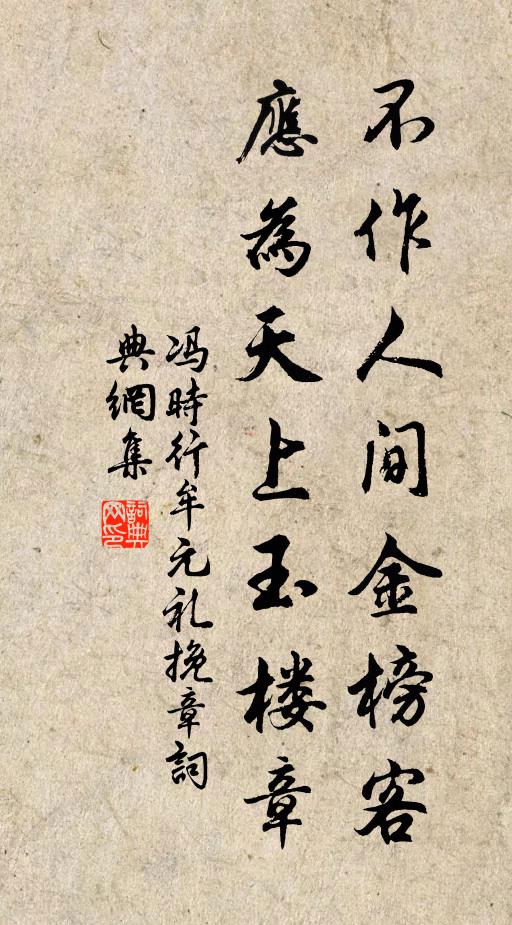 不作人间金榜客
應為天上玉楼章
冯時行牟元礼挽章詞
典網集
詞典网印